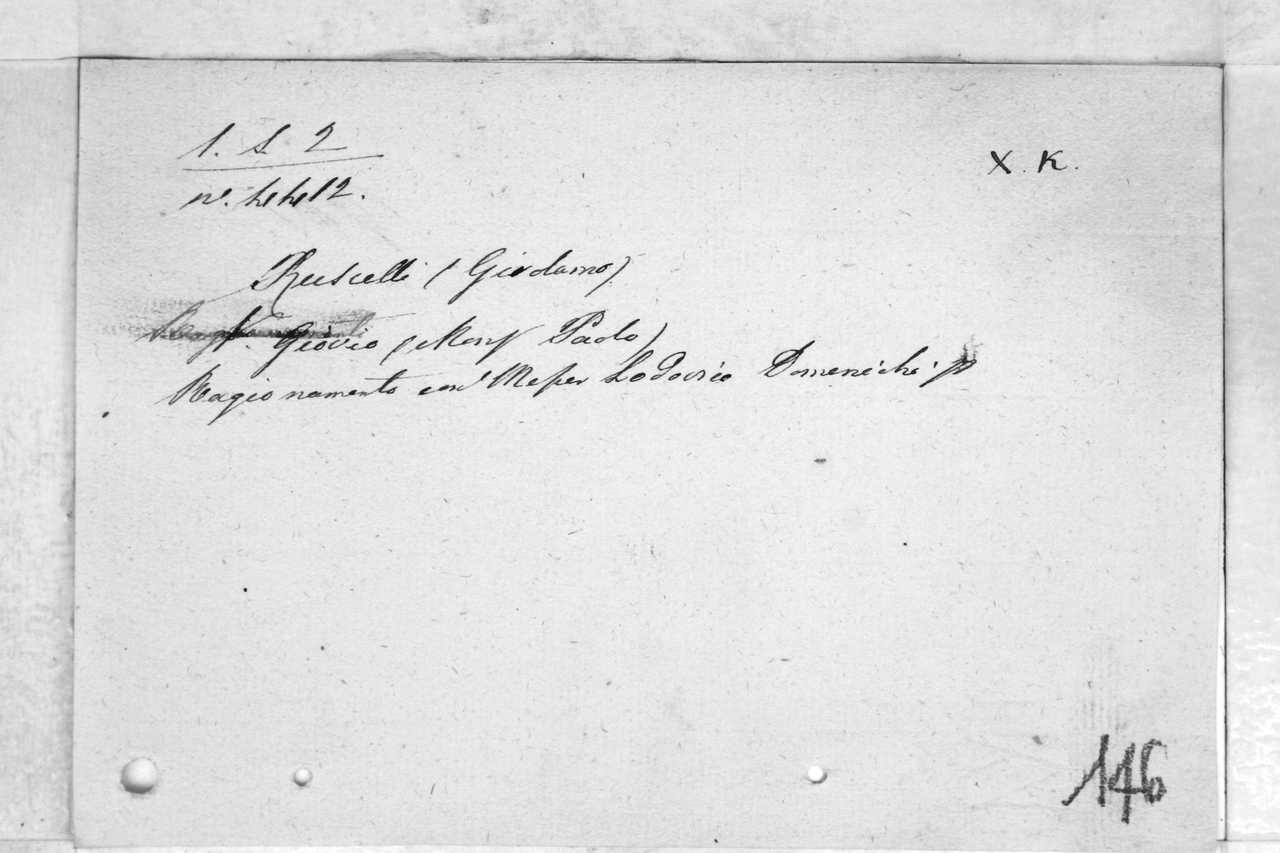 1. S. 2
X. K.
nº. 4412.
Ruscelli (Girolamo)
V. Giovio (Monsʳ Paolo)
Ragionamento con Messer Lodovico Domenichi
146